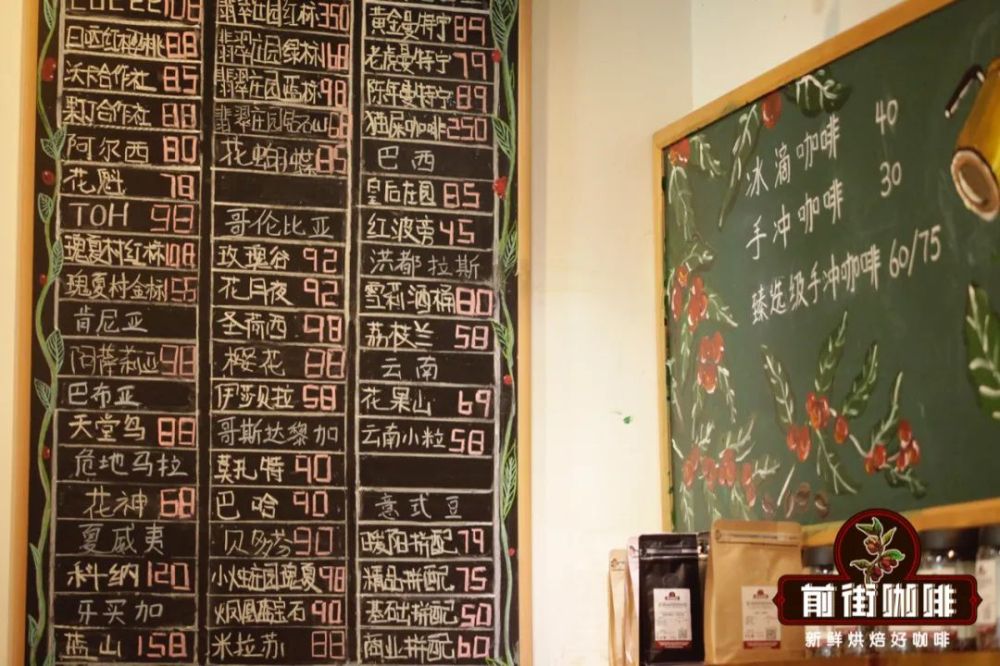 108
日晒红樱桃 88
沃卡合作社 85
果丁合作社 88
阿尔西 80
花魁 78
TOH 98
瑰夏村红标 108
瑰夏村金标 155
肯尼亚
阿萨莉亚 98
巴布亚
天堂鸟 88
危地马拉
花神 68
夏威夷
科纳 120
牙买加
蓝山 158
翡翠庄园红标 350
翡翠庄园绿标 168
翡翠庄园蓝标 98
翡翠庄园钻石山 68
花蝴蝶 85
哥伦比亚
玫瑰谷 92
花月夜 92
圣荷西 98
樱花 88
伊莎贝拉 58
哥斯达黎加
莫扎特 90
巴哈 90
贝多芬 90
小烛庄园瑰夏 98
凰蓝宝石 90
米拉苏 88
黄金曼特宁 89
老虎曼特宁 79
陈年曼特宁 89
猫屎咖啡 250
巴西
皇后庄园 85
红波旁 45
洪都拉斯
雪莉酒桶 80
荔枝兰 58
云南
花果山 69
云南小粒 58
意式豆
暖阳拼配 79
精品拼配 75
基础拼配 50
商业拼配 60
冰滴咖啡 40
手冲咖啡 30
臻选级手冲咖啡 60/75
前街咖啡
新鲜烘焙好咖啡